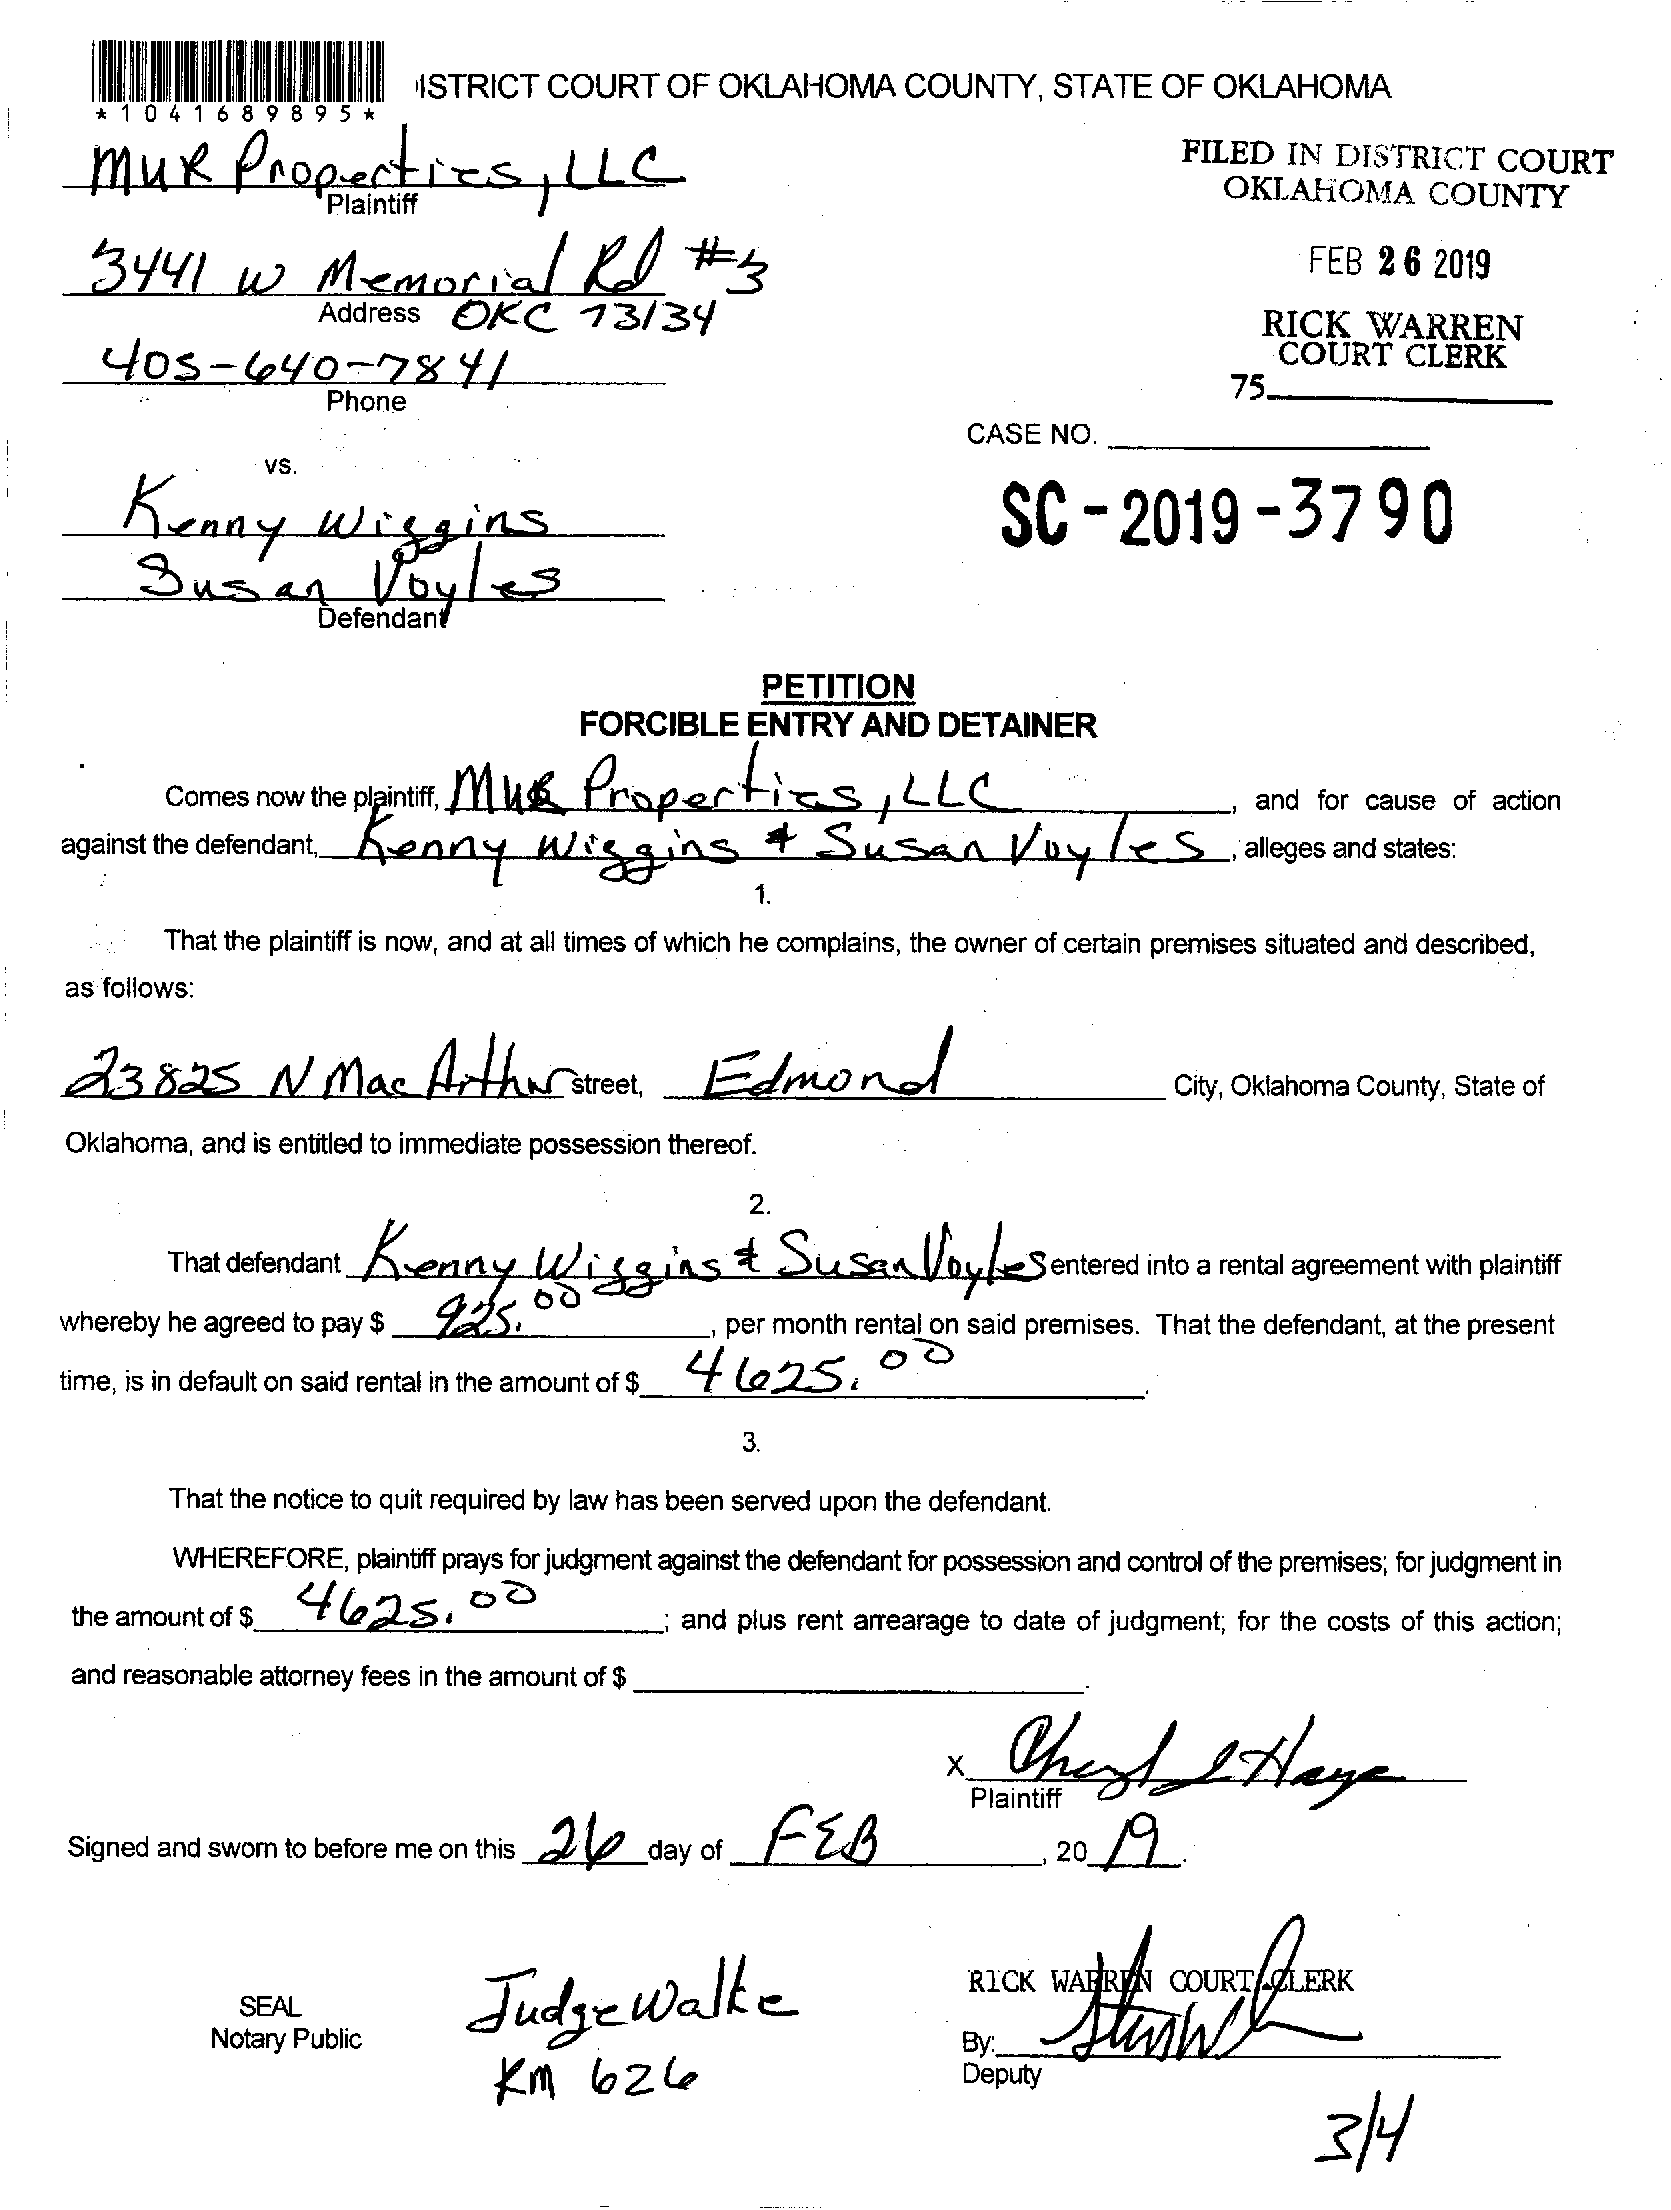 ISTRICT COURT OF OKLAHOMA COUNTY, STATE OF OKLAHOMA
*1041689895*
MUR Properties, LLC
Plaintiff
FILED IN DISTRICT COURT
OKLAHOMA COUNTY
3441 W Memorial Rd #3
Address OKC 73134
FEB 26 2019
RICK WARREN
COURT CLERK
405-640-7841
Phone
75
CASE NO.
vs.
SC-2019-3790
Kenny Wiggins
Susan Voyles
Defendant
PETITION
FORCIBLE ENTRY AND DETAINER
Comes now the plaintiff, MUR Properties, LLC, and for cause of action
against the defendant, Kenny Wiggins & Susan Voyles, alleges and states:
1.
That the plaintiff is now, and at all times of which he complains, the owner of certain premises situated and described,
as follows:
23825 N MacArthur street, Edmond City, Oklahoma County, State of
Oklahoma, and is entitled to immediate possession thereof.
2.
That defendant Kenny Wiggins & Susan Voyles entered into a rental agreement with plaintiff
whereby he agreed to pay $ 925.00, per month rental on said premises. That the defendant, at the present
time, is in default on said rental in the amount of $ 4625.00.
3.
That the notice to quit required by law has been served upon the defendant.
WHEREFORE, plaintiff prays for judgment against the defendant for possession and control of the premises; for judgment in
the amount of $ 4625.00; and plus rent arrearage to date of judgment; for the costs of this action;
and reasonable attorney fees in the amount of $ .
X Cheryl L Haye
Plaintiff
Signed and sworn to before me on this 26 day of FEB, 20 19.
SEAL
Notary Public
Judge Walke
KM 626
RICK WARREN COURT CLERK
By:
Deputy
3/4